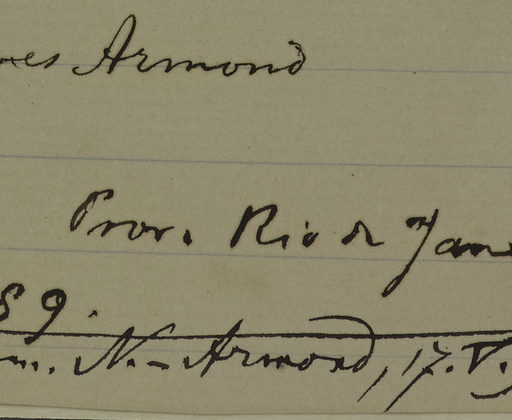 es Armond
Prov. Rio de Jane
89.
m. N. Armond, 17. V.